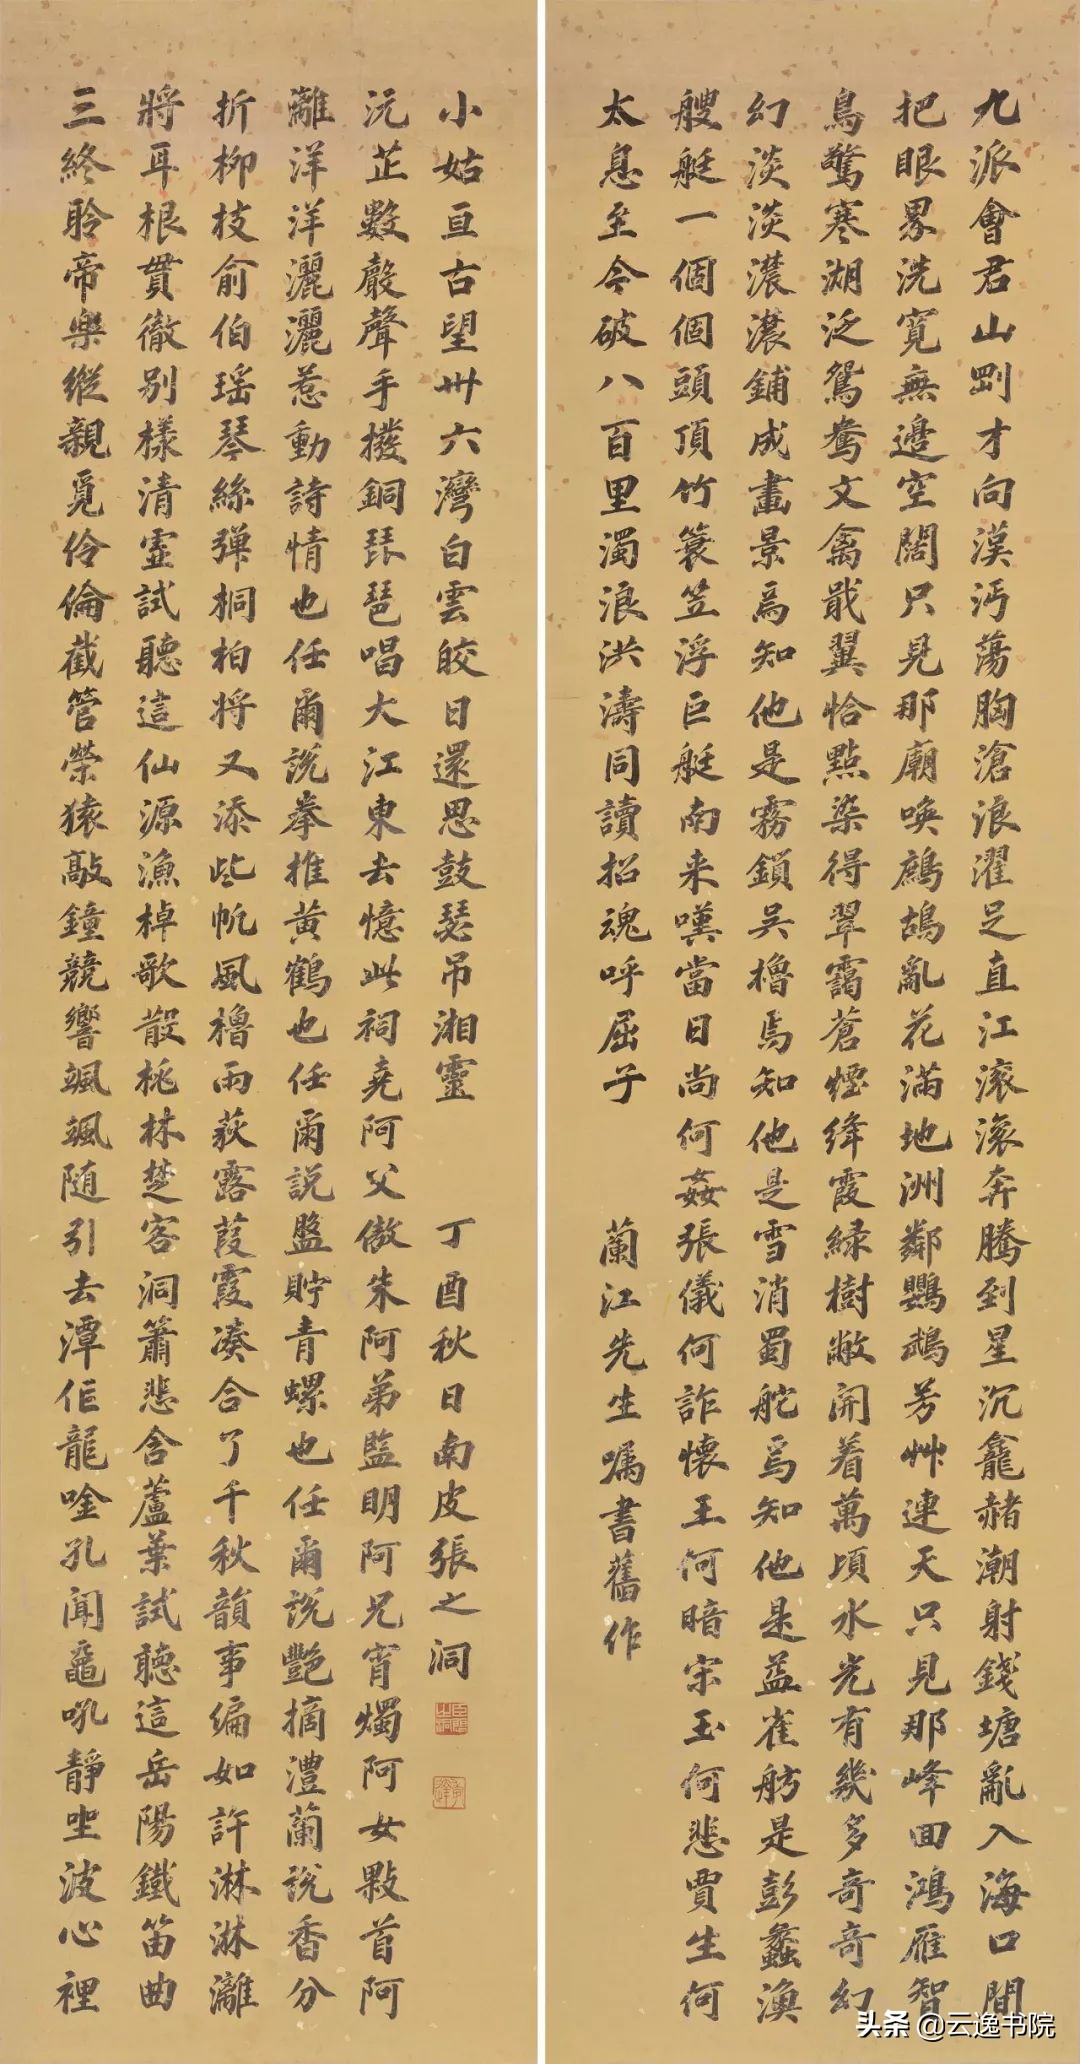 九派會君山剛才向漢沔蕩胸滄浪濯足直江滚滚奔騰到星沉龕赭潮射錢塘亂入海口間
把眼界洗寬無邊空闊只見那廟喚鷓鴣亂花滿地洲鄰鸚鵡芳艸連天只見那峰回鴻雁智
鳥驚寒湖泛鴛鴦文禽戢翼恰點染得翠靄蒼煙絳霞緑樹敞開着萬頃水光有幾多奇奇幻
幻淡淡濃濃鋪成畫景焉知他是霧鎖吳櫓焉知他是雪消蜀舵焉知他是益雀舫是彭蠡漁
艘艇一個個頭頂竹簑笠浮巨艇南来嘆當日尚何姦張儀何詐懷王何暗宋玉何悲賈生何
太息至今破八百里濁浪洪濤同讀招魂呼屈子
蘭江先生嘱書舊作
三終聆帝樂縱親覓伶倫截管荣猿敲鐘競響颯颯随引去潭作龍唫孔聞鼉吼靜坐波心裡
將耳根貫徹别樣清靈試聽這仙源漁棹歌散桃林楚客洞簫悲含蘆葉試聽這岳陽鐵笛曲
折柳枝俞伯瑶琴絲弹桐柏将又添些帆風櫓雨荻露葭霞凑合了千秋韻事偏如許淋淋灕
灕洋洋灑灑惹動詩情也任爾說拳推黄鶴也任爾説盤貯青螺也任爾説艷摘澧蘭説香分
沅芷數聲聲手撥銅琵琶唱大江東去憶此祠堯阿父傲朱阿弟監明阿兄宵燭阿女敤首阿
小姑亘古望卅六灣白雲皎日還思鼓瑟吊湘靈
丁酉秋日南皮張之洞
头条 @云逸书院